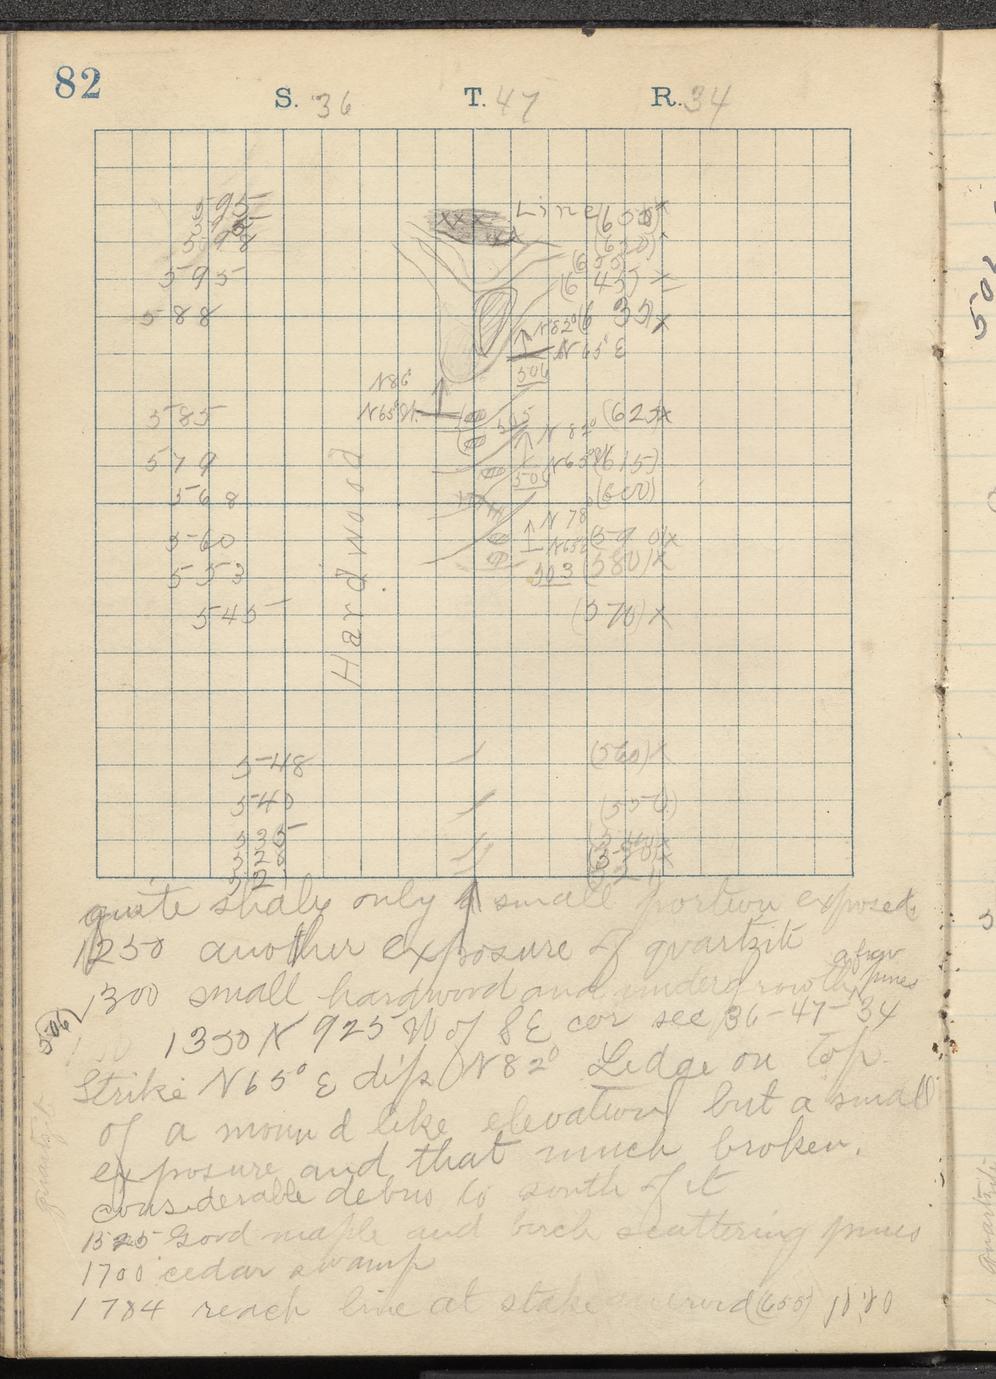 82
S. 36 T. 47 R. 34
595
598
595
588
585
579
568
560
553
545
548
540
535
528
52
Hardwood
Line (655)x
(650)x
(655)
(645)x
(635)x
N82°
N65°E
506
N86°
N65°W.
505
N 82° (625)x
N65°W (615)
506
(600)
N 78° (590)x
N65°E
503 (580)x
(570)x
(560)x
(550)
quite shaly only a small portion exposed.
1250 another exposure of quartzite
1300 small hardwood and undergrowth, a few pines
506
1350 N 925 W of SE cor sec 36-47-34
Strike N65°E dip N82° Ledge on top
of a mound like elevation but a small
exposure and that much broken.
considerable debris to south of it
quartzit.
1525 Good maple and birch scattering pines
1700 cedar swamp
1784 reach line at stake (655)